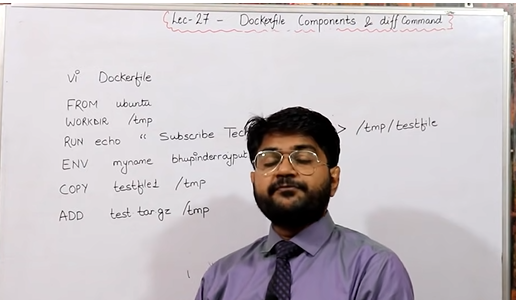 Lec-27 - Dockerfile Components & diff Command
vi Dockerfile
FROM ubuntu
WORKDIR /tmp
RUN echo " Subscribe Tech > /tmp/testfile
ENV myname bhupinderrajput
COPY testfile1 /tmp
ADD test tar gz /tmp